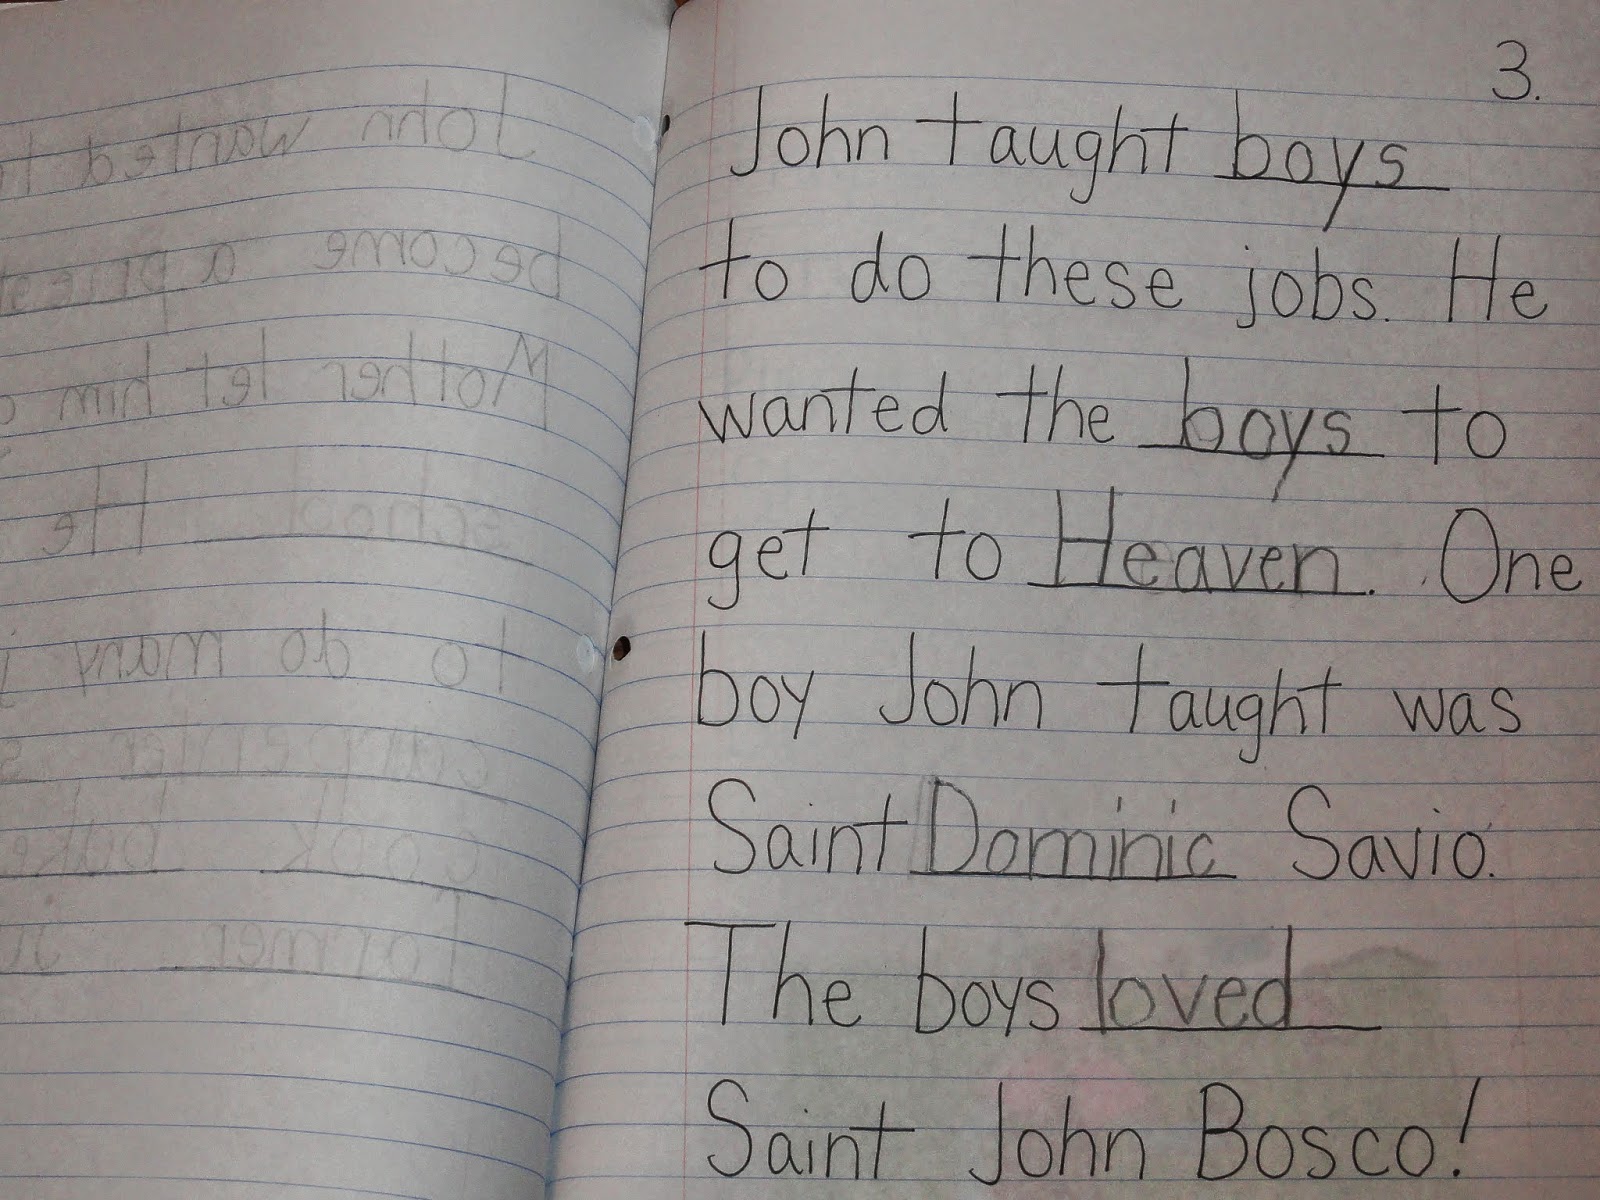 3.
John taught boys
to do these jobs. He
wanted the boys to
get to Heaven. One
boy John taught was
Saint Dominic Savio.
The boys loved
Saint John Bosco!